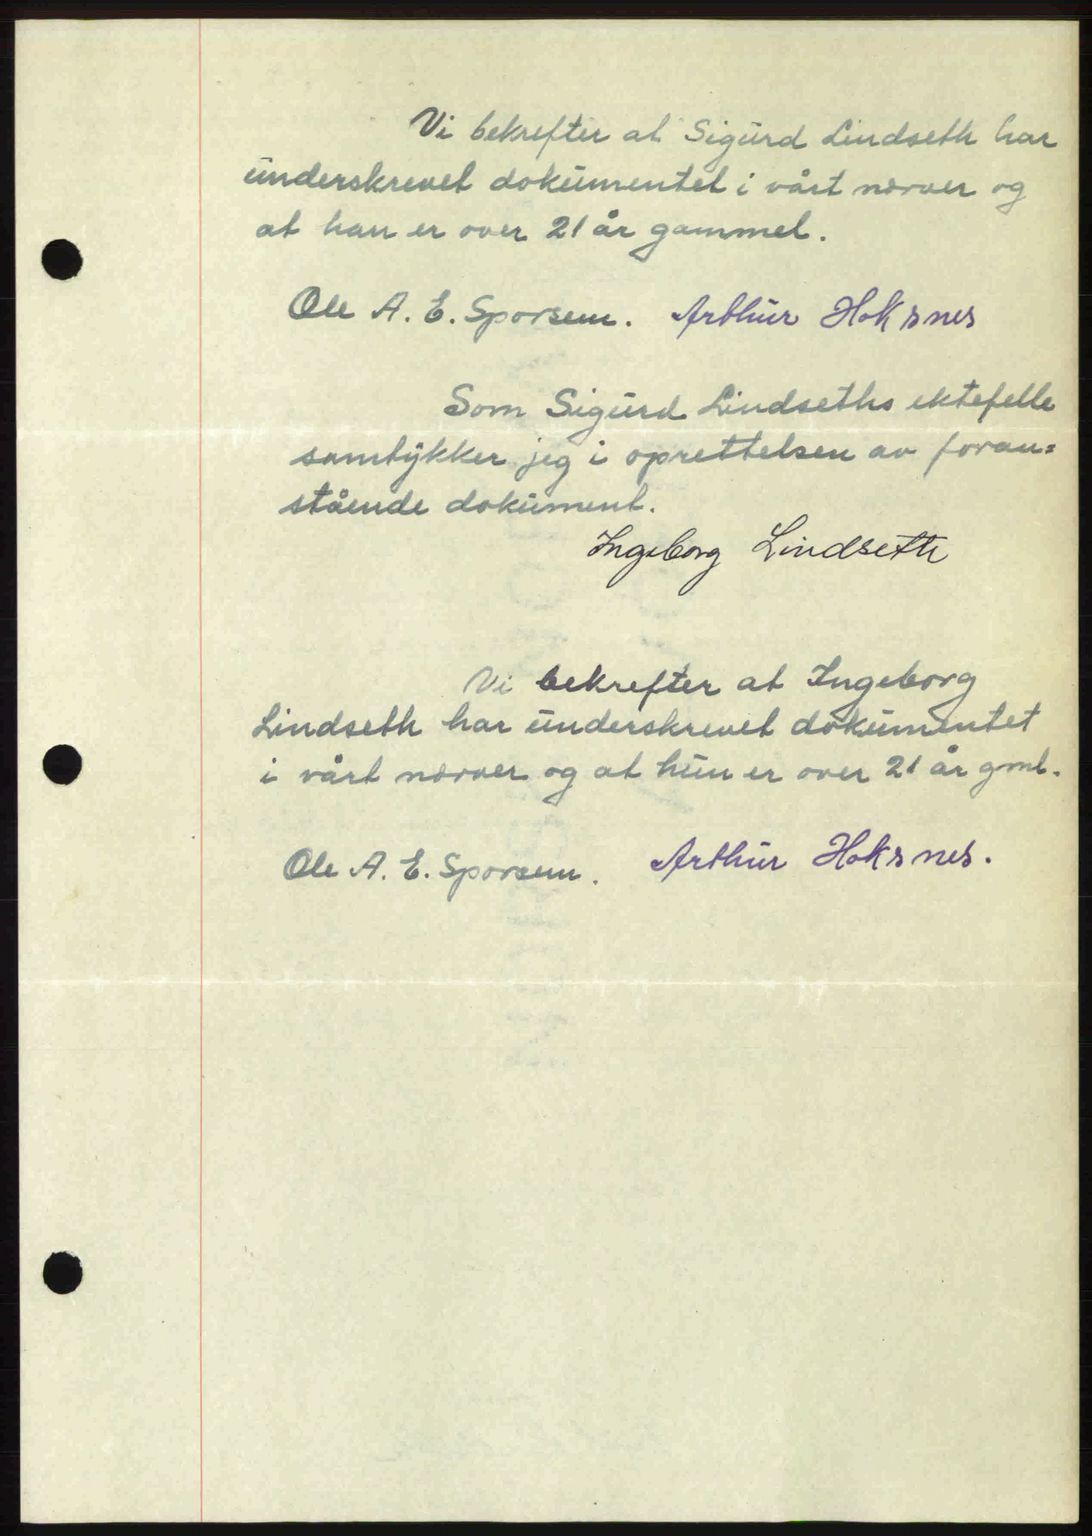 Vi bekrefter at Sigurd Lindseth har
underskrevet dokumentet i vårt nærver og
at han er over 21 år gammel.
Ole A. E. Sporsem. Arthur Hoksnes
Som Sigurd Lindseths ektefelle
samtykker jeg i oprettelsen av foran=
stående dokument.
Ingeborg Lindseth
Vi bekrefter at Ingeborg
Lindseth har underskrevet dokumentet
i vårt nærver og at hun er over 21 år gml.
Ole A. E. Sporsem. Arthur Hoksnes.